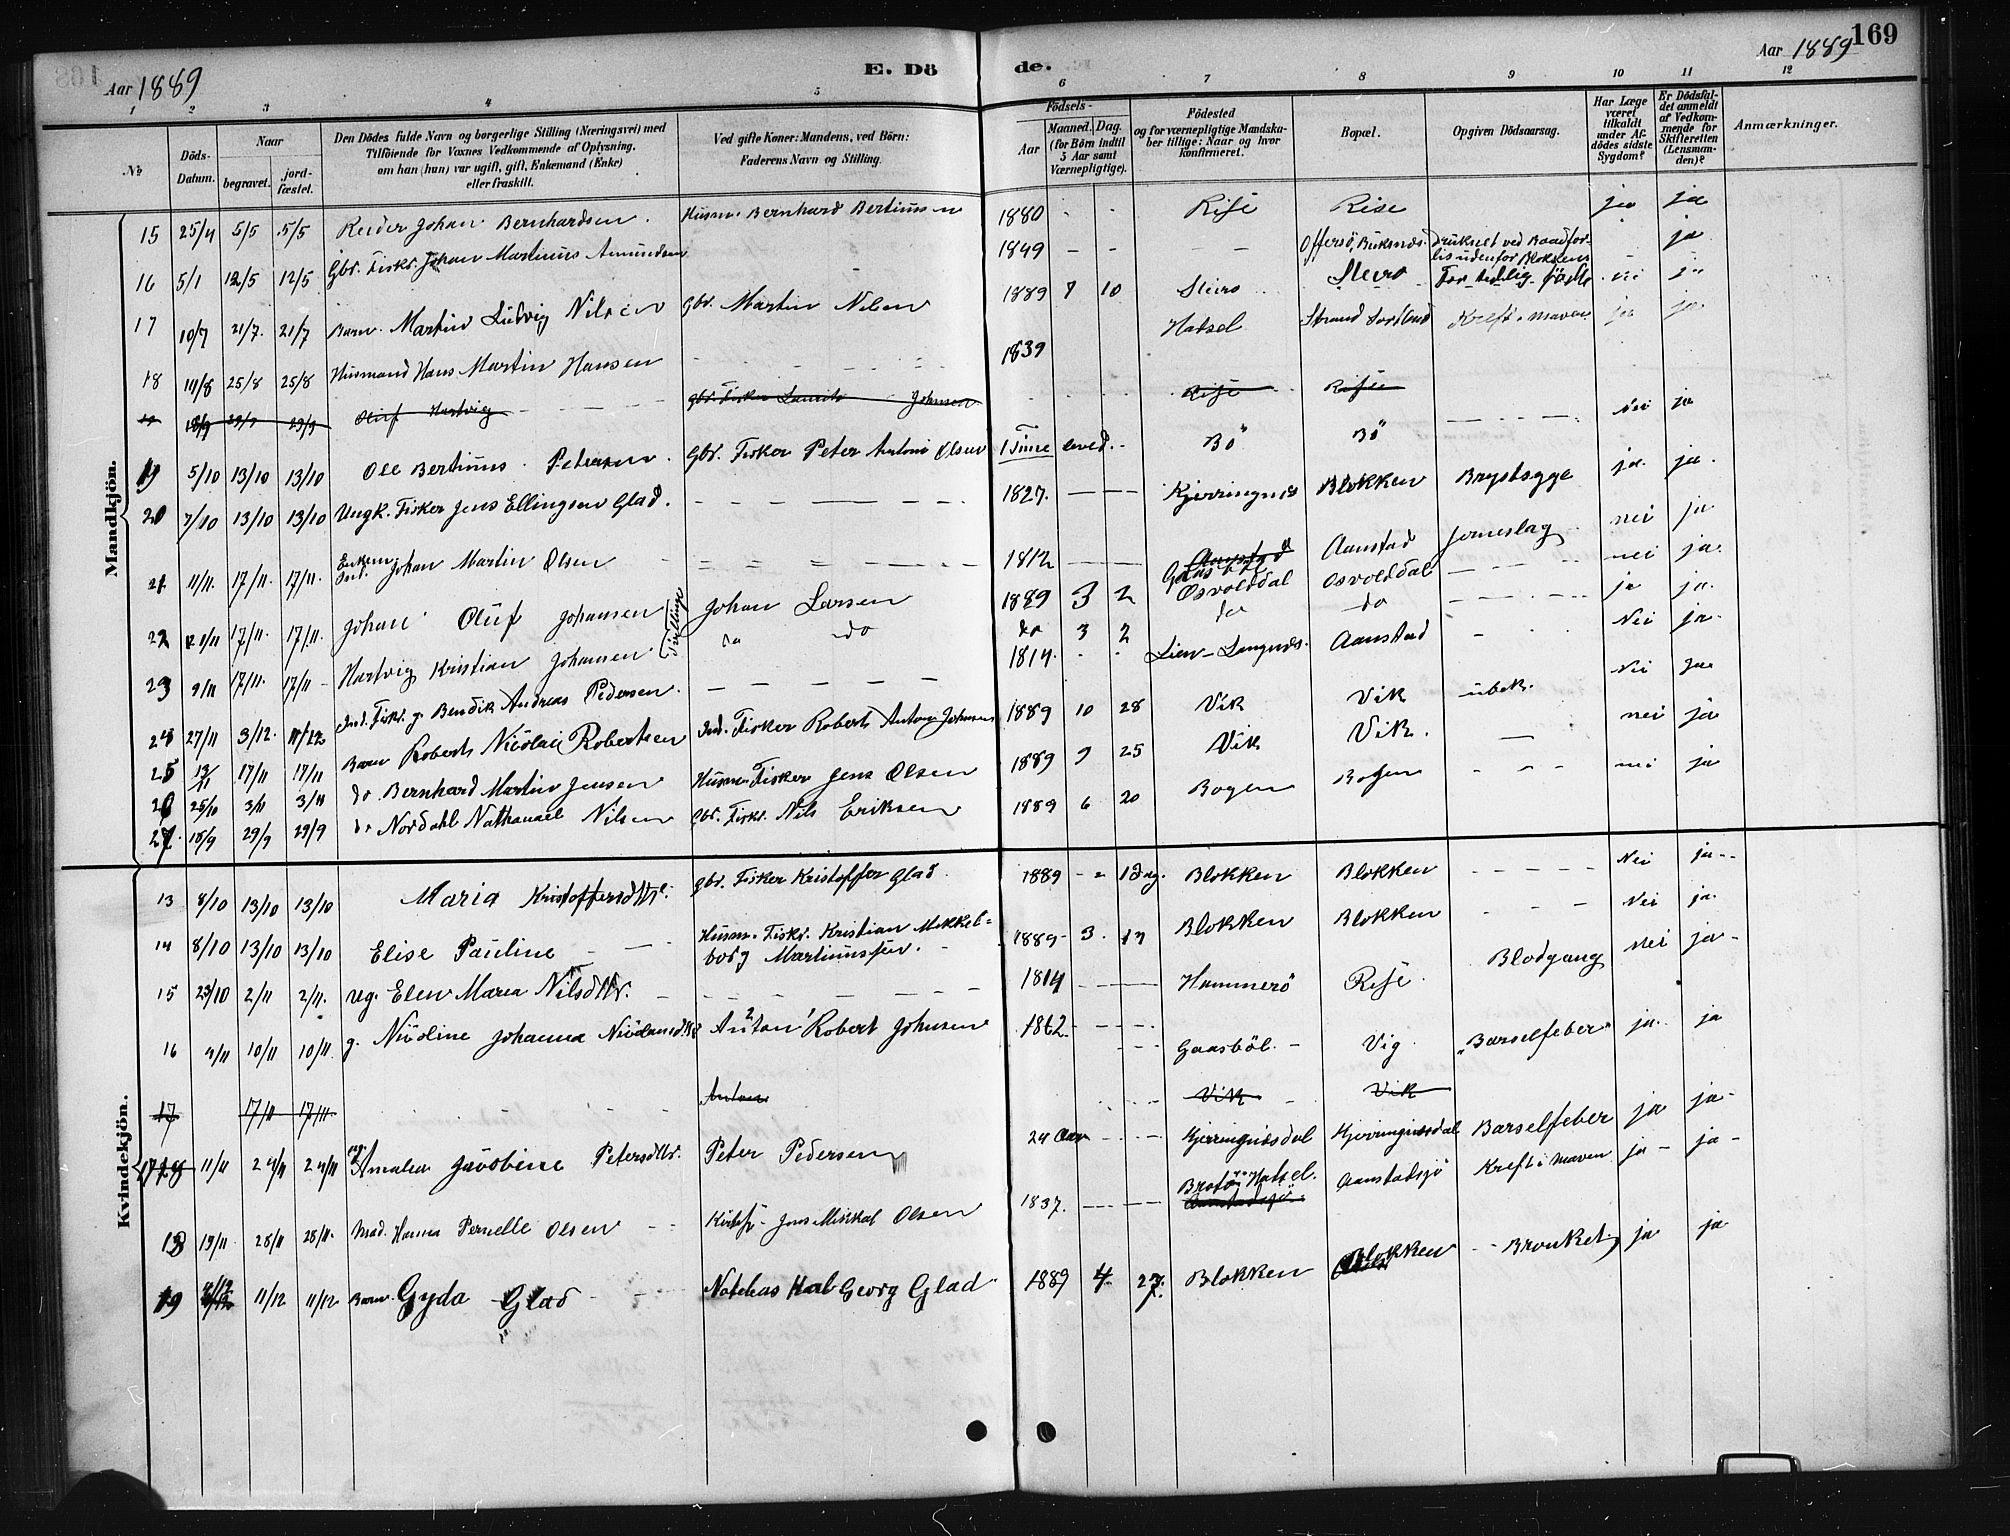 Aar 1889
E. Dö
de.
Aar 1889
169
1 2 3 4 5 6 7 8 9 10 11 12
№
Döds-Datum.
Naar
begravet. jordfæstet.
Den Dödes fulde Navn og borgerlige Stilling (Næringsvei) med Tilföiende for Voxnes Vedkommende af Oplysning, om han (hun) var ugift, gift, Enkemand (Enke) eller fraskilt.
Ved gifte Koner: Mandens, ved Börn: Faderens Navn og Stilling.
Födsels-
Aar
Maaned. Dag.
(for Börn indtil 5 Aar samt Værnepligtige).
Födested og for værnepligtige Mandskaber tillige: Naar og hvor konfirmeret.
Bopæl.
Opgiven Dödsaarsag.
Har Læge været tilkaldt under Afdödes sidste Sygdom?
Er Dödsfaldet anmeldt af Vedkommende for Skifteretten (Lensmanden)?
Anmærkninger.
Mandkjön.
15 25/4 5/5 5/5 Reider Johan Bernhardsen. Husm. Bernhard Bertinusen 1880 - - Rise Rise ja ja
16 5/1 12/5 12/5 Gbr. Fiskr. Johan Martinus Amundsen 1849 - - - - Offersö, Buksnæs druknet ved Baadforlis udenfor Blokken - ja
17 10/7 21/7. 21/7 Barn. Martin Ludvig Nilsen Gbr. Martin Nilsen 1889 7 10 Steiro Steiro For tidlig födt nei ja
18 14/8 25/8 25/8 Husmand Hans Martin Hansen 1839 Hatsel Strand Sortland Kreft i Maven ja ja
19 18/9 29/9 29/9 Oluf Hartvig Gbr. Fisker Laurits Johnsen Rise Risee
19 5/10 13/10 13/10 Ole Bertinus Petersen. Gbr. Fisker Peter Antoni Olsen 1 Time leved. Bö Bö Nei ja
20 7/10 13/10 13/10 Ungk. Fisker Jens Ellingsen Glad. 1827. Kjerringnes Blokken Brystsyge ja. ja.
21 11/11. 17/11. 17/11. Enkem. Ind. Johan Martin Olsen 1812 Aanstad Aanstad Jerneslag nei ja
22 11/11 17/11. 17/11. Johan Oluf Johansen Tvillinge Johan Larsen 1889 3 2 Osvolddal Osvolddal nei ja.
23 9/11 17/11. 17/11 - Hartvig Kristian Johansen do do do 3 2 do do ja ja.
24 27/11 3/12. 11/12 Ind. Fiskr. g. Bendik Andreas Pedersen. 1814. Lien - Langnes. Aanstad Nei ja.
25 12/11 17/11 17/11 Barn Robert Nicolai Robertsen Ind. Fisker Robert Anton Johnsen 1889 10 28 Vik Vik ubek. Nei ja
26 25/10 3/11 3/11 do Bernhard Martin Jensen Husm. Fisker Jens Olsen 1889 9 25 Vik Vik. nei ja
27. 18/9 29/9 29/9 do Nordahl Nathanael Nilsen Gbr. Fiskr. Nils Eriksen 1889 6 20 Bogen Bogen nei ja
Kvindekjön.
13 8/10 13/10 13/10 Maria Kristoffersdttr. Gbr. Fisker Kristoffer Glad. 1889 - - 1 Dag. Blokken Blokken Nei ja
14 8/10 13/10 13/10 Elise Pauline Husm. Fiskr. Kristian Mekkelborg Martinussen. 1889 3. 17 Blokken Blokken Nei ja.
15 23/10 2/11 2/11. Ug. Elen Marea Nilsdttr. 1814 Hammerö Rise. Blodgang nei ja
16 4/11 10/11 10/11. g. Nicoline Johanna Nicolaisdttr Anton Robert Johnsen 1862 Gaasböl. Vig. „Barselfeber" ja. ja
17 17/11 17/11 Anton Vik Vik
17 18 11/11 24/11 24/11 ug. Amalia Jacobine Petersdttr. Peter Pedersen 24 Aar Kjerringnæsdal Kjerringnæsdal Barselfeber ja ja
18 19/11 28/11 28/11. Mad. Hanna Pernelle Olsen Jens Mikkal Olsen 1837. Hatsel. Aanstadsjö Aanstadsjö Kreft i Maven ja - ja -
19 11/12 11/12 Barn. Gyda Glad Georg Glad 1889 4 27. Blokken Blokken Bronket. ja ja